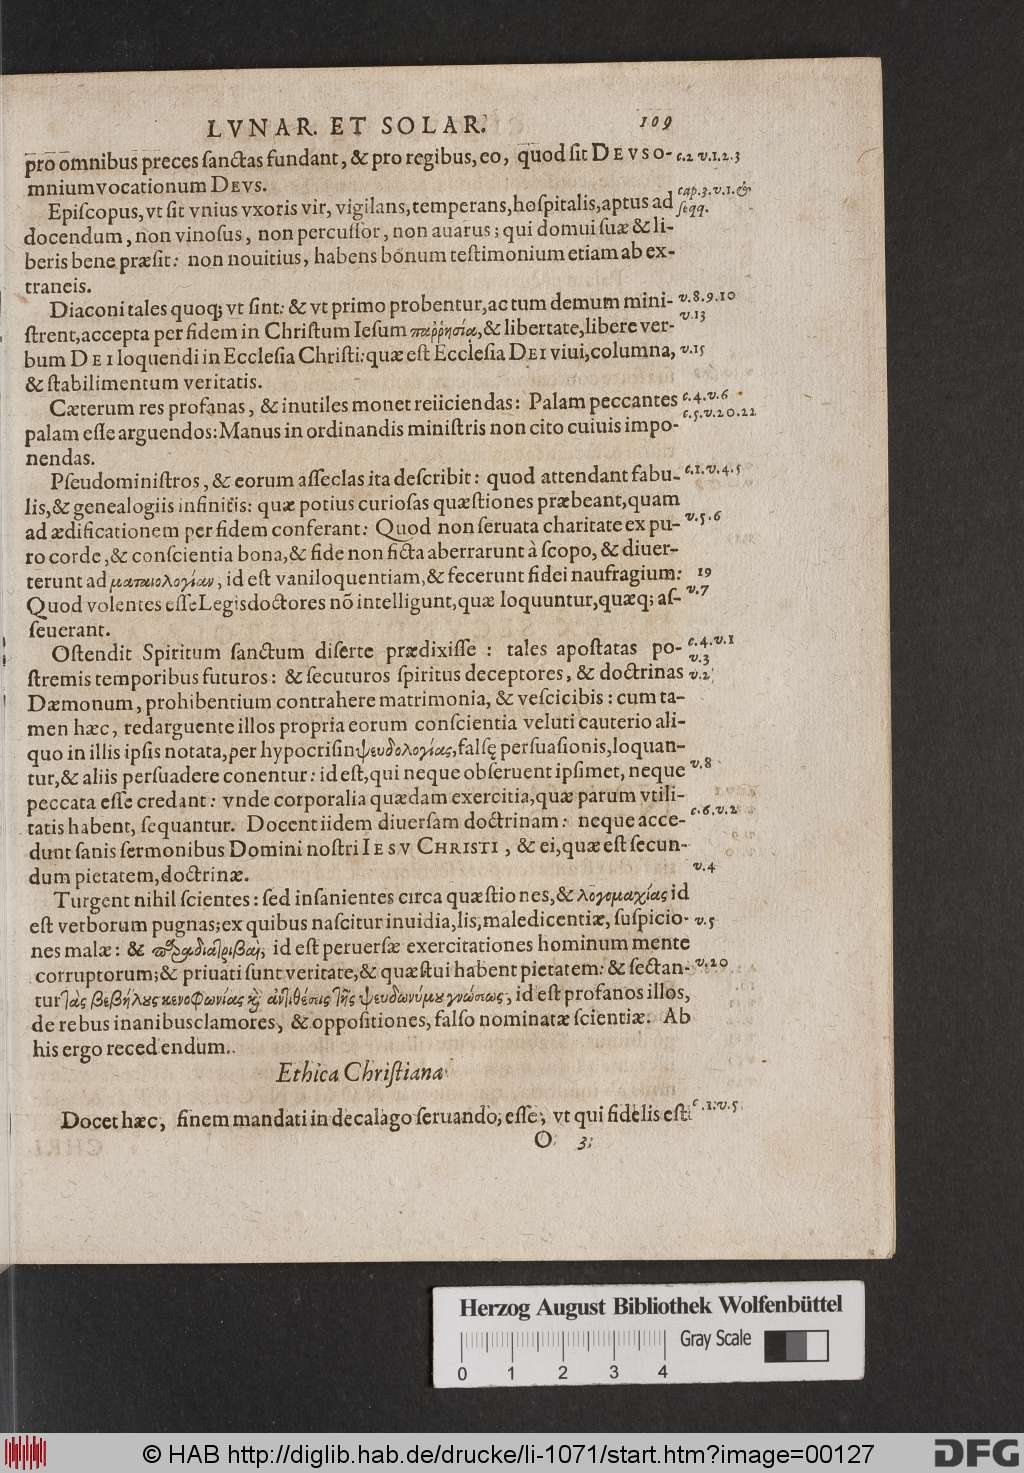 LVNAR. ET SOLAR. 109
pro omnibus preces ſanctas fundant, & pro regibus, eo, quod ſit DEVS o- c.2 v.1.2.3
mnium vocationum DEVS.
Epiſcopus, vt ſit vnius vxoris vir, vigilans, temperans, hoſpitalis, aptus ad cap.3.v.1.&
docendum, non vinoſus, non percuſſor, non auarus; qui domui ſuæ & li- ſeqq.
beris bene præſit: non nouitius, habens bonum teſtimonium etiam ab ex-
traneis.
Diaconi tales quoq; vt ſint: & vt primo probentur, ac tum demum mini- v.8.9.10
ſtrent, accepta per fidem in Chriſtum Ieſum παῤῥησίᾳ, & libertate, libere ver- v.13
bum DEI loquendi in Eccleſia Chriſti: quæ eſt Eccleſia DEI viui, columna, v.15
& ſtabilimentum veritatis.
Cæterum res profanas, & inutiles monet reiiciendas: Palam peccantes c.4.v.6
palam eſſe arguendos: Manus in ordinandis miniſtris non cito cuiuis impo- c.5.v.20.22
nendas.
Pſeudominiſtros, & eorum aſſeclas ita deſcribit: quod attendant fabu- c.1.v.4.5
lis, & genealogiis infinitis: quæ potius curioſas quæſtiones præbeant, quam
ad ædificationem per fidem conferant: Quod non ſeruata charitate ex pu- v.5.6
ro corde, & conſcientia bona, & fide non ficta aberrarunt à ſcopo, & diuer-
terunt ad ματαιολογίαν, id eſt vaniloquentiam, & fecerunt fidei naufragium: 19
Quod volentes eſſe Legisdoctores nō intelligunt, quæ loquuntur, quæq; aſ- v.7
ſeuerant.
Oſtendit Spiritum ſanctum diſerte prædixiſſe: tales apoſtatas po- c.4.v.1
ſtremis temporibus futuros: & ſecuturos ſpiritus deceptores, & doctrinas v.3 v.2
Dæmonum, prohibentium contrahere matrimonia, & veſcicibis: cum ta-
men hæc, redarguente illos propria eorum conſcientia veluti cauterio ali-
quo in illis ipſis notata, per hypocriſin ψευδολογίας, falſę perſuaſionis, loquan-
tur, & aliis perſuadere conentur: id eſt, qui neque obſeruent ipſimet, neque v.8
peccata eſſe credant: vnde corporalia quædam exercitia, quæ parum vtili-
tatis habent, ſequantur. Docent iidem diuerſam doctrinam: neque acce- c.6.v.2
dunt ſanis ſermonibus Domini noſtri IESV CHRISTI, & ei, quæ eſt ſecun-
dum pietatem, doctrinæ. v.4
Turgent nihil ſcientes: ſed inſanientes circa quæſtiones, & λογομαχίας id
eſt verborum pugnas; ex quibus naſcitur inuidia, lis, maledicentiæ, ſuſpicio- v.5
nes malæ: & παραδιατριβαὶ, id eſt peruerſæ exercitationes hominum mente
corruptorum; & priuati ſunt veritate, & quæſtui habent pietatem: & ſectan- v.20
tur τὰς βεβήλους κενοφωνίας καὶ ἀντιθέσεις τῆς ψευδωνύμου γνώσεως, id eſt profanos illos,
de rebus inanibus clamores, & oppoſitiones, falſo nominatæ ſcientiæ. Ab
his ergo recedendum.
Ethica Chriſtiana
Docet hæc, finem mandati in decalago ſeruando, eſſe, vt qui fidelis eſt: c.1.v.5.
O 3
Herzog August Bibliothek Wolfenbüttel
Gray Scale
0 1 2 3 4
© HAB http://diglib.hab.de/drucke/li-1071/start.htm?image=00127
DFG